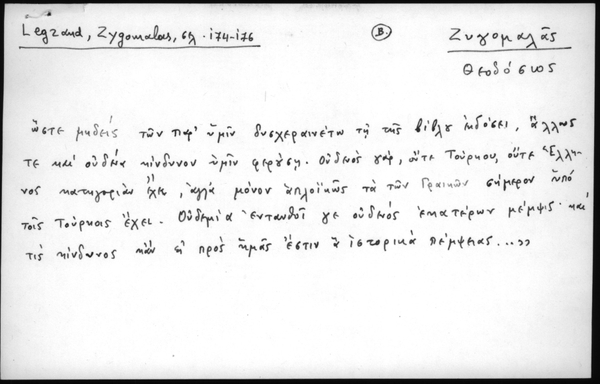 Legrand, Zygomalas, σελ. 174-176
Β.
Ζυγομαλᾶς
Θεοδόσιος
ὥστε μηδείς τῶν παρ' ὑμῖν δυσχεραινέτω τῇ τῆς βίβλου ἐκδόσει, ἄλλως
τε καί οὐδένα κίνδυνον ὑμῖν φερούσῃ. Οὐδενός γάρ, οὔτε Τούρκου, οὔτε Ἕλλη-
νος κατηγορίαν ἔχει, ἀλλά μόνον ἁπλοϊκῶς τά τῶν Γραικῶν σήμερον ὑπό
τοῖς Τούρκοις ἔχει. Οὐδεμία ἐνταυθοῖ γε οὐδενός ἑκατέρων μέμψις· καί
τίς κίνδυνος κἄν εἰ πρός ἡμᾶς ἐστιν ἅ ἱστορικά πέμψειας...»»